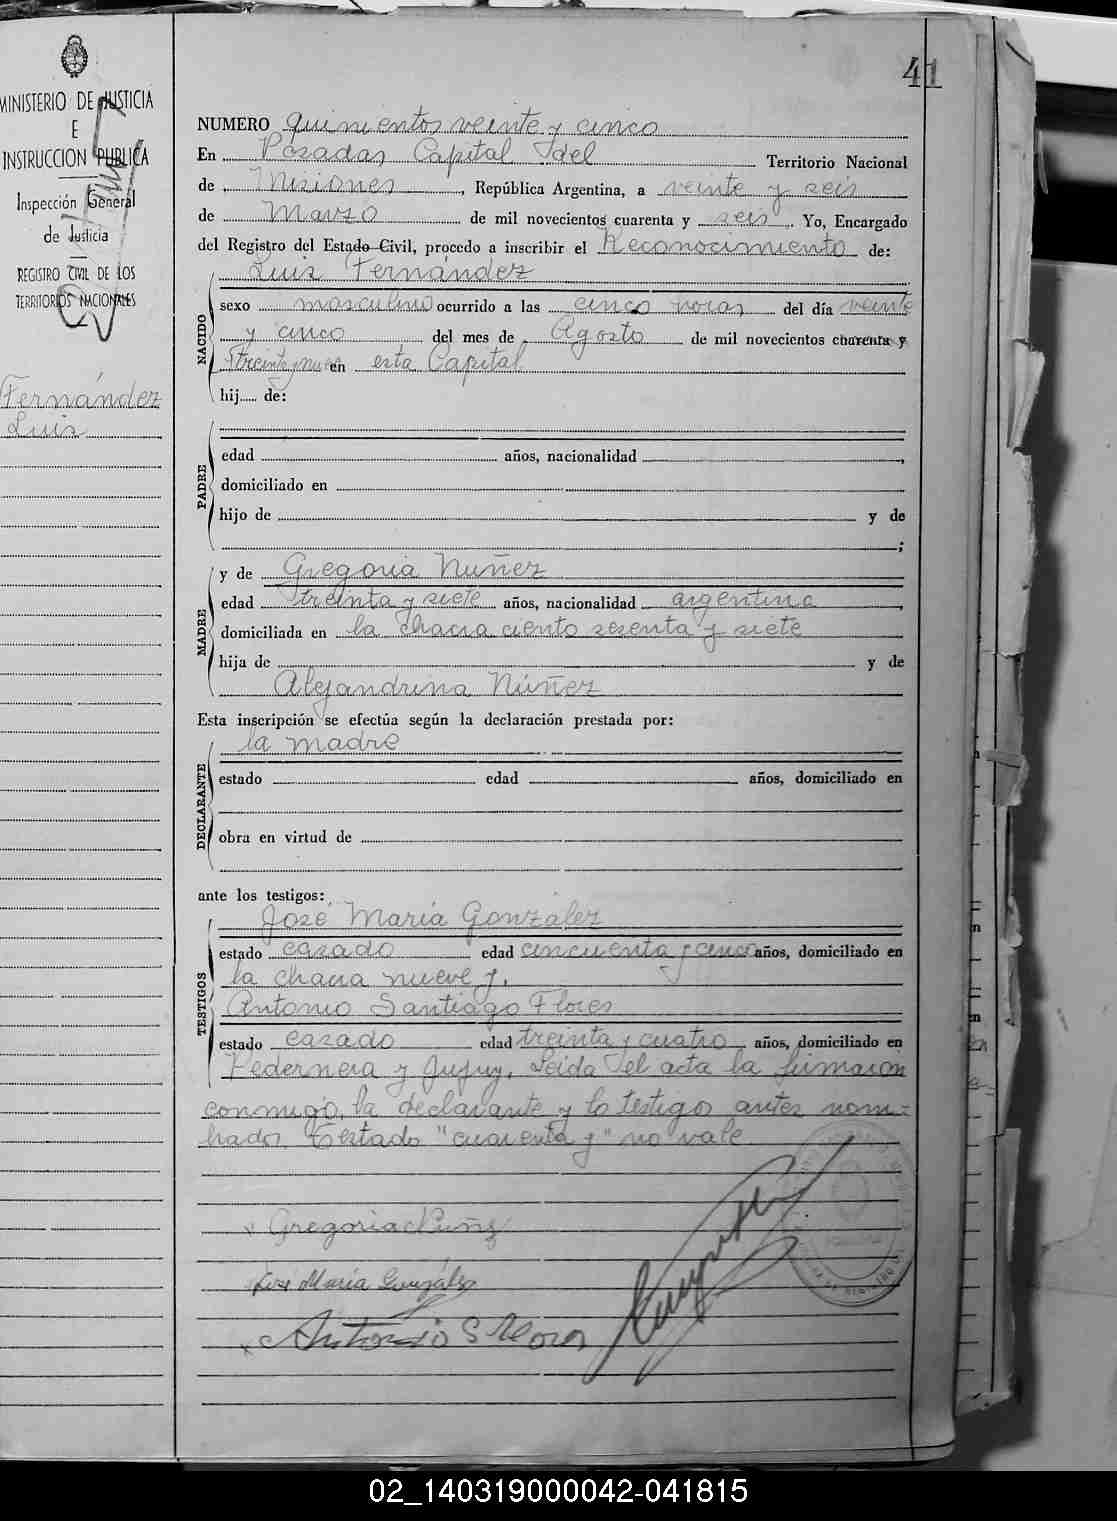 41
MINISTERIO DE JUSTICIA
E
INSTRUCCION PUBLICA
Inspección General
de Justicia
REGISTRO CIVIL DE LOS
TERRITORIOS NACIONALES
Fernández
Luis
NUMERO quinientos veinte y cinco
En Posadas Capital del Territorio Nacional
de Misiones, República Argentina, a veinte y seis
de Marzo de mil novecientos cuarenta y seis. Yo, Encargado
del Registro del Estado Civil, procedo a inscribir el Reconocimiento de:
Luis Fernández
NACIDO
sexo masculino ocurrido a las cinco horas del día veinte
y cinco del mes de Agosto de mil novecientos cuarenta y
treinta y nueve en esta Capital
hij..... de:
PADRE
edad años, nacionalidad ,
domiciliado en
hijo de y de
;
MADRE
y de Gregoria Nuñez
edad treinta y siete años, nacionalidad argentina,
domiciliada en la chacra ciento sesenta y siete
hija de y de
Alejandrina Núñez
Esta inscripción se efectúa según la declaración prestada por:
la madre
DECLARANTE
estado edad años, domiciliado en
obra en virtud de
ante los testigos:
José María González
TESTIGOS
estado casado edad cincuenta y cinco años, domiciliado en
la chacra nueve y.
Antonio Santiago Flores
estado casado edad treinta y cuatro años, domiciliado en
Pedernera y Jujuy. Leida el acta la firmaron
conmigo, la declarante y lo testigos antes nom-
brados. Testado "cuarenta y" no vale
Gregoria Nuñz
José María González
Antonio S Flores
02_140319000042-041815